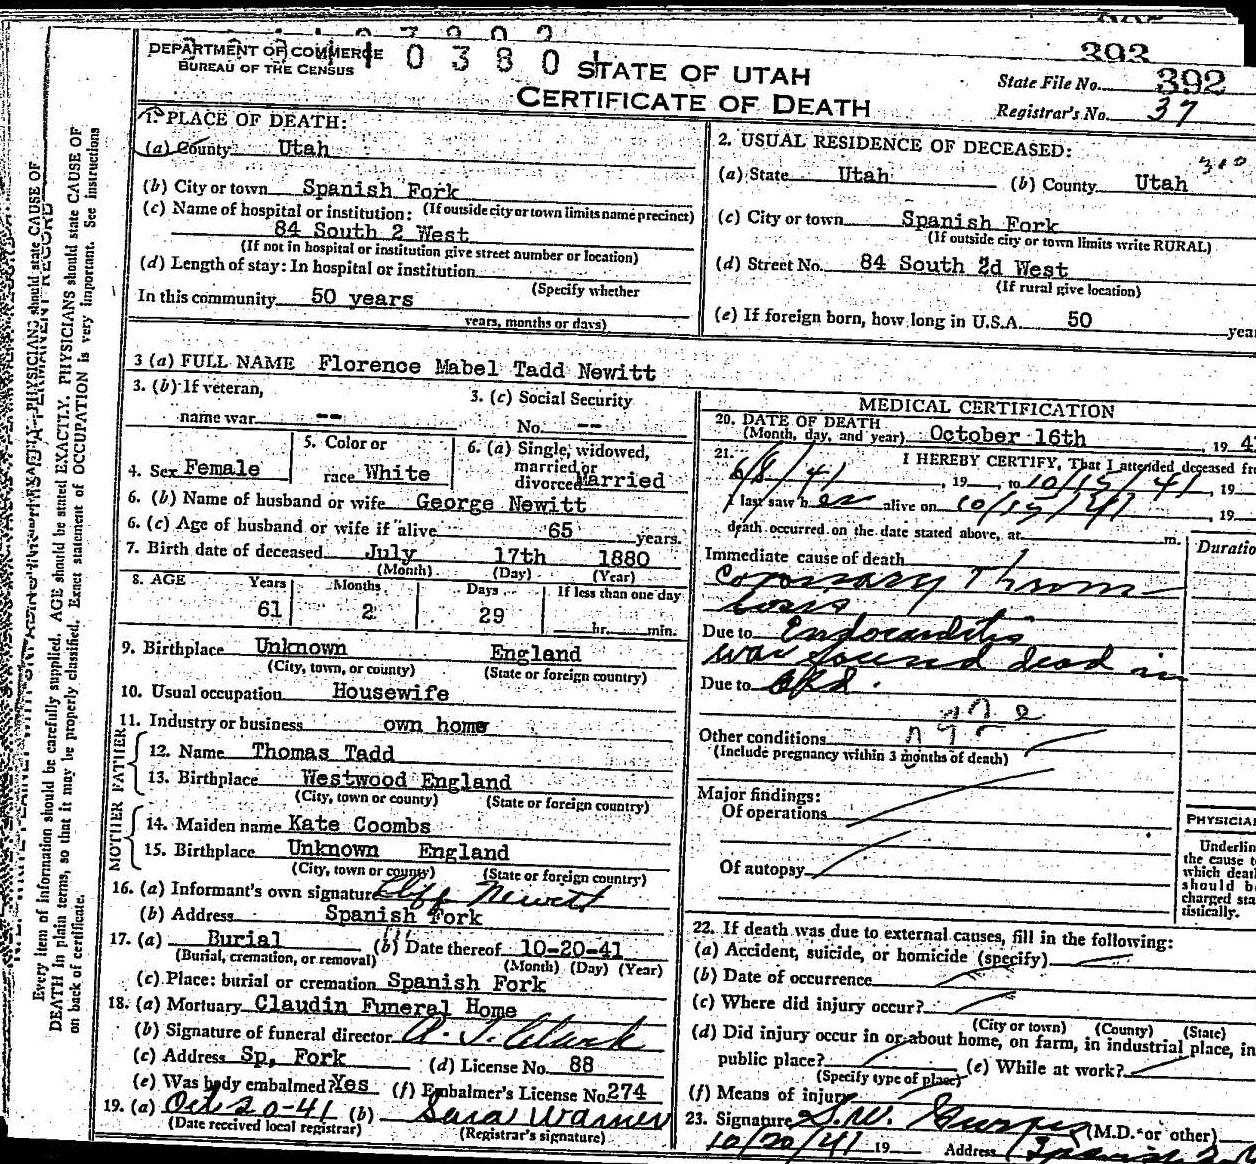 393
DEPARTMENT OF COMMERCE
BUREAU OF THE CENSUS
0 3 8 0
STATE OF UTAH
CERTIFICATE OF DEATH
State File No. 392
Registrar's No. 37
1. PLACE OF DEATH:
(a) County Utah
(b) City or town Spanish Fork
(If outside city or town limits name precinct)
(c) Name of hospital or institution:
84 South 2 West
(If not in hospital or institution give street number or location)
(d) Length of stay: In hospital or institution
(Specify whether
In this community 50 years
years, months or days)
2. USUAL RESIDENCE OF DECEASED:
(a) State Utah (b) County Utah
(c) City or town Spanish Fork
(If outside city or town limits write RURAL)
(d) Street No. 84 South 2d West
(If rural give location)
(e) If foreign born, how long in U.S.A. 50
3 (a) FULL NAME Florence Mabel Tadd Newitt
3. (b) If veteran,
name war --
3. (c) Social Security
No. --
4. Sex Female
5. Color or
race White
6. (a) Single, widowed,
married or
divorced Married
6. (b) Name of husband or wife George Newitt
6. (c) Age of husband or wife if alive 65 years.
7. Birth date of deceased July 17th 1880
(Month) (Day) (Year)
8. AGE Years Months Days If less than one day
61 2 29 hr. min.
9. Birthplace Unknown England
(City, town, or county) (State or foreign country)
10. Usual occupation Housewife
11. Industry or business own home
FATHER
12. Name Thomas Tadd
13. Birthplace Westwood England
(City, town or county) (State or foreign country)
MOTHER
14. Maiden name Kate Coombs
15. Birthplace Unknown England
(City, town or county) (State or foreign country)
16. (a) Informant's own signature Cliff Newitt
(b) Address Spanish Fork
17. (a) Burial (b) Date thereof 10-20-41
(Burial, cremation, or removal) (Month) (Day) (Year)
(c) Place: burial or cremation Spanish Fork
18. (a) Mortuary Claudin Funeral Home
(b) Signature of funeral director
(c) Address Sp, Fork (d) License No. 88
(e) Was body embalmed? Yes (f) Embalmer's License No. 274
19. (a) Oct 20-41 (b) Sara Warner
(Date received local registrar) (Registrar's signature)
MEDICAL CERTIFICATION
20. DATE OF DEATH
(Month, day, and year) October 16th 19 4
21. I HEREBY CERTIFY, That I attended deceased fr
6/8/41, 19 , to 10/15/41, 19
I last saw h er alive on 10/15/41, 19
death occurred on the date stated above, at m.
Duratio
Immediate cause of death
Coronary Throm
bosis
Due to Endocarditis
was found dead in
Due to bed.
Other conditions
(Include pregnancy within 3 months of death)
Major findings:
Of operations
Of autopsy
PHYSICIA
Underlin
the cause t
which deat
should b
charged sta
tistically.
22. If death was due to external causes, fill in the following:
(a) Accident, suicide, or homicide (specify)
(b) Date of occurrence
(c) Where did injury occur?
(City or town) (County) (State)
(d) Did injury occur in or about home, on farm, in industrial place, in
public place? (e) While at work?
(Specify type of place)
(f) Means of injury
23. Signature (M.D. or other)
10/20/41 19 Address
Every item of information should be carefully supplied. AGE should be stated EXACTLY. PHYSICIANS should state CAUSE OF
DEATH in plain terms, so that it may be properly classified. Exact statement of OCCUPATION is very important. See instructions
on back of certificate.